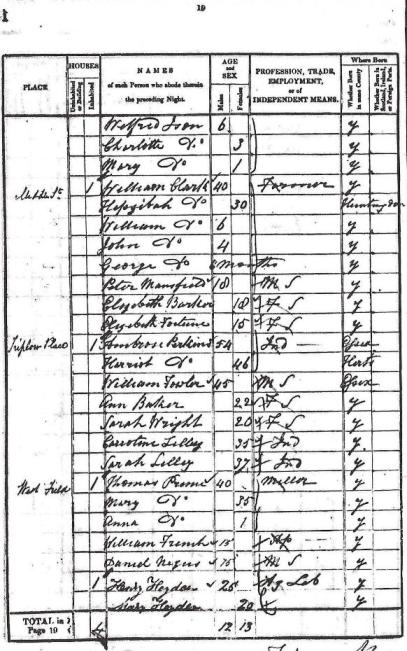 19
PLACE
HOUSES
Uninhabited or Building
Inhabited
NAMES
of each Person who abode therein the preceding Night.
AGE and SEX
Males
Females
PROFESSION, TRADE, EMPLOYMENT, or of INDEPENDENT MEANS.
Where Born
Whether Born in same County
Whether Born in Scotland, Ireland, or Foreign Parts.
Wilfred Ison 6 y
Charlotte Do 3 y
Mary Do 1 y
1 William Clark 40 Farmer y
Hepzibah Do 30 Huntingdon
William Do 6 y
John Do 4 y
George Do months y
Peter Mansfield 18 M S y
Elizabeth Barker 18 F S y
Elizabeth Fortune 15 F S y
Triplow Place 1 Ambrose Perkins 54 Ind Essex
Harriot Do 46 Herts
William Fowler 45 M S Essex
Ann Baker 22 F S y
Sarah Wright 20 F S y
Caroline Lilley 35 Ind y
Sarah Lilley 37 Ind y
West Field 1 Thomas Prime 40 Miller y
Mary Do 35 y
Anna Do 1 y
William French 15 Ap y
Daniel Negus 75 M S y
1 Henry Hayden 25 Ag Lab y
Mary Hayden 20 y
TOTAL in Page 19 4 12 13